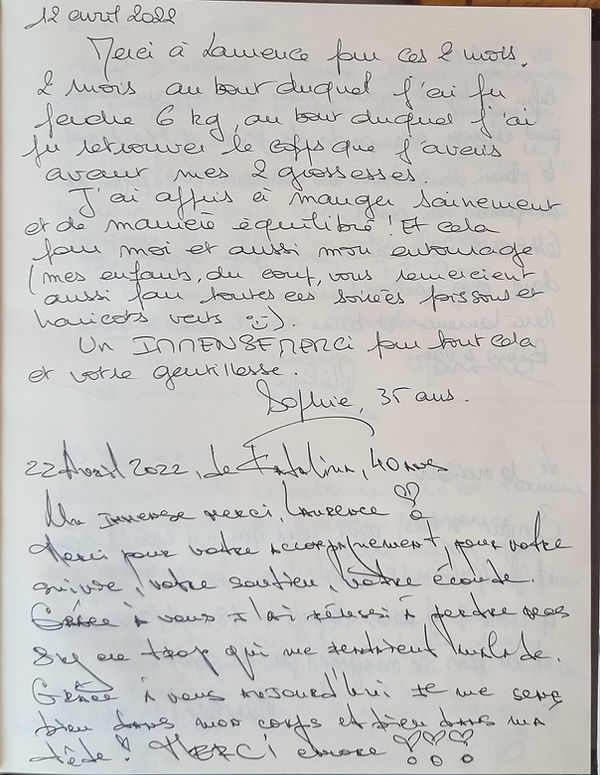 12 avril 2022
Merci à Laurence pour ces 2 mois.
2 mois au bout duquel j'ai pu
perdre 6 kg, au bout duquel j'ai
pu retrouver le corps que j'avais
avant mes 2 grossesses.
J'ai appris à manger sainement
et de manière équilibré ! Et cela
pour moi et aussi mon entourage
(mes enfants, du coup, vous remercient
aussi pour toutes ces soirées poissons et
haricots verts :)).
Un IMMENSE MERCI pour tout cela
et votre gentillesse.
Sophie, 35 ans.
22 Avril 2022, de Katalina, 40 ans
Un immense merci, Laurence !
Merci pour votre accompagnement, pour votre
suivie, votre soutien, votre écoute.
Grâce à vous j'ai réussi à perdre mes
8 kg en trop qui me rendaient malade.
Grâce à vous aujourd'hui je me sens
bien dans mon corps et bien dans ma
tête ! MERCI encore !!!